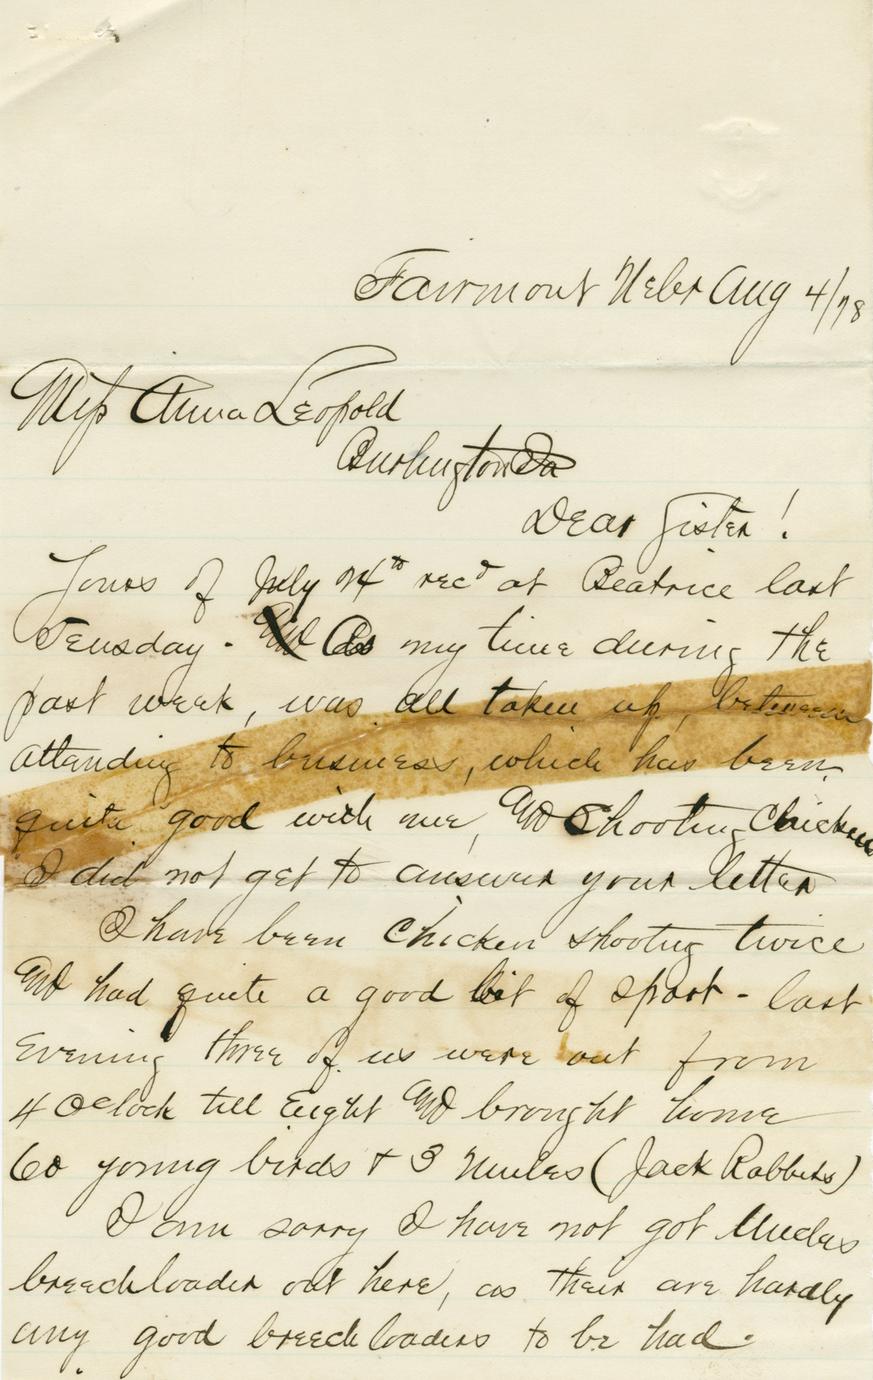 Fairmont Nebr Aug 4/78
Miss Anna Leopold
Burlington Ia
Dear Sister!
Yours of July 24th recd at Beatrice last
Teusday. And As my time during the
past week, was all taken up, between
attending to business, which has been
quite good with me, And Shooting Chickens
I did not get to answer your letter
I have been Chicken shooting twice
And had quite a good bit of sport - last
Evening three of us were out from
4 Oclock till Eught And brought home
60 young birds & 3 Mules (Jack Rabbits)
I am sorry I have not got
breechloader out here, as their are hardly
any good breech loaders to be had.